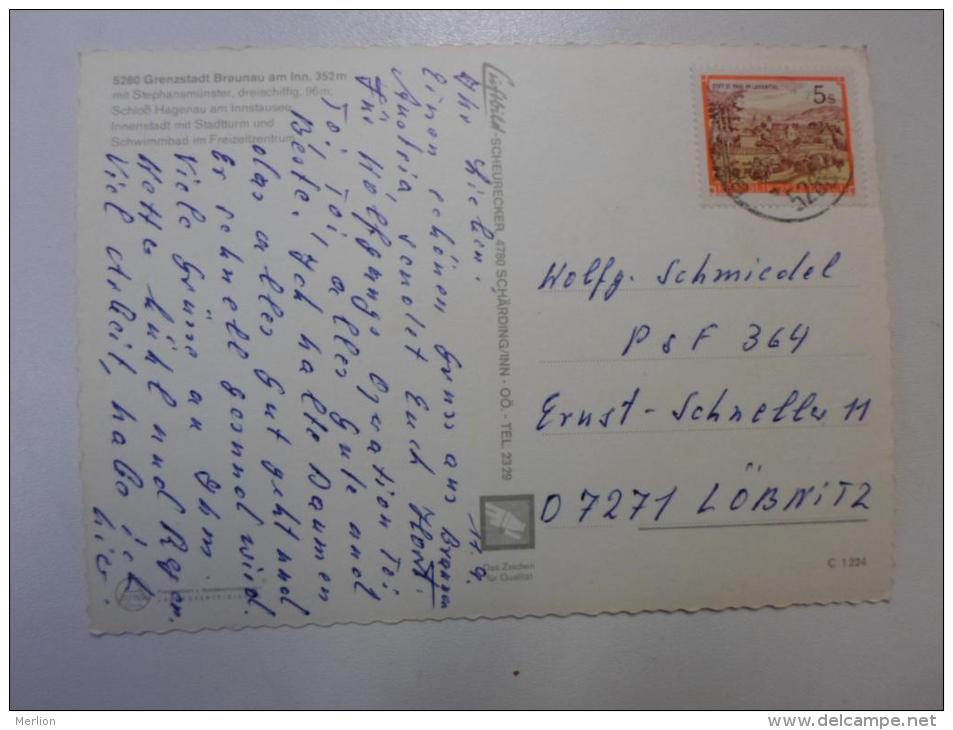 5280 Grenzstadt Braunau am Inn, 352m
mit Stephansmünster, dreischiffig, 96m;
Schloß Hagenau am Innstausee
Innenstadt mit Stadtturm und
Schwimmbad im Freizeitzentrum
11.9.
Ihr Lieben.
Einen schönen Gruss aus Braunau
Austria sendet Euch Horst.
Für Wolfgangs Operation Toi
Toi, Toi, alles Gute und
Beste. Ich halte Daumen
das alles Gut geht und
Er schnell gesund wird.
Viele Grüsse an Ihm.
Wetter kühl und Regen.
Viel Arbeit, habe ich
hier.
Luftbild-SCHEURECKER, 4780 SCHÄRDING/INN - OÖ. - TEL. 2329
STIFT ST. PAUL IM LAVANTTAL
5s
528
Wolfg. Schmiedel
PSF 364
Ernst-Schneller 11
D 7271 LÖBNITZ
Das Zeichen
für Qualität
C 1224
Merlion
delcampe.net